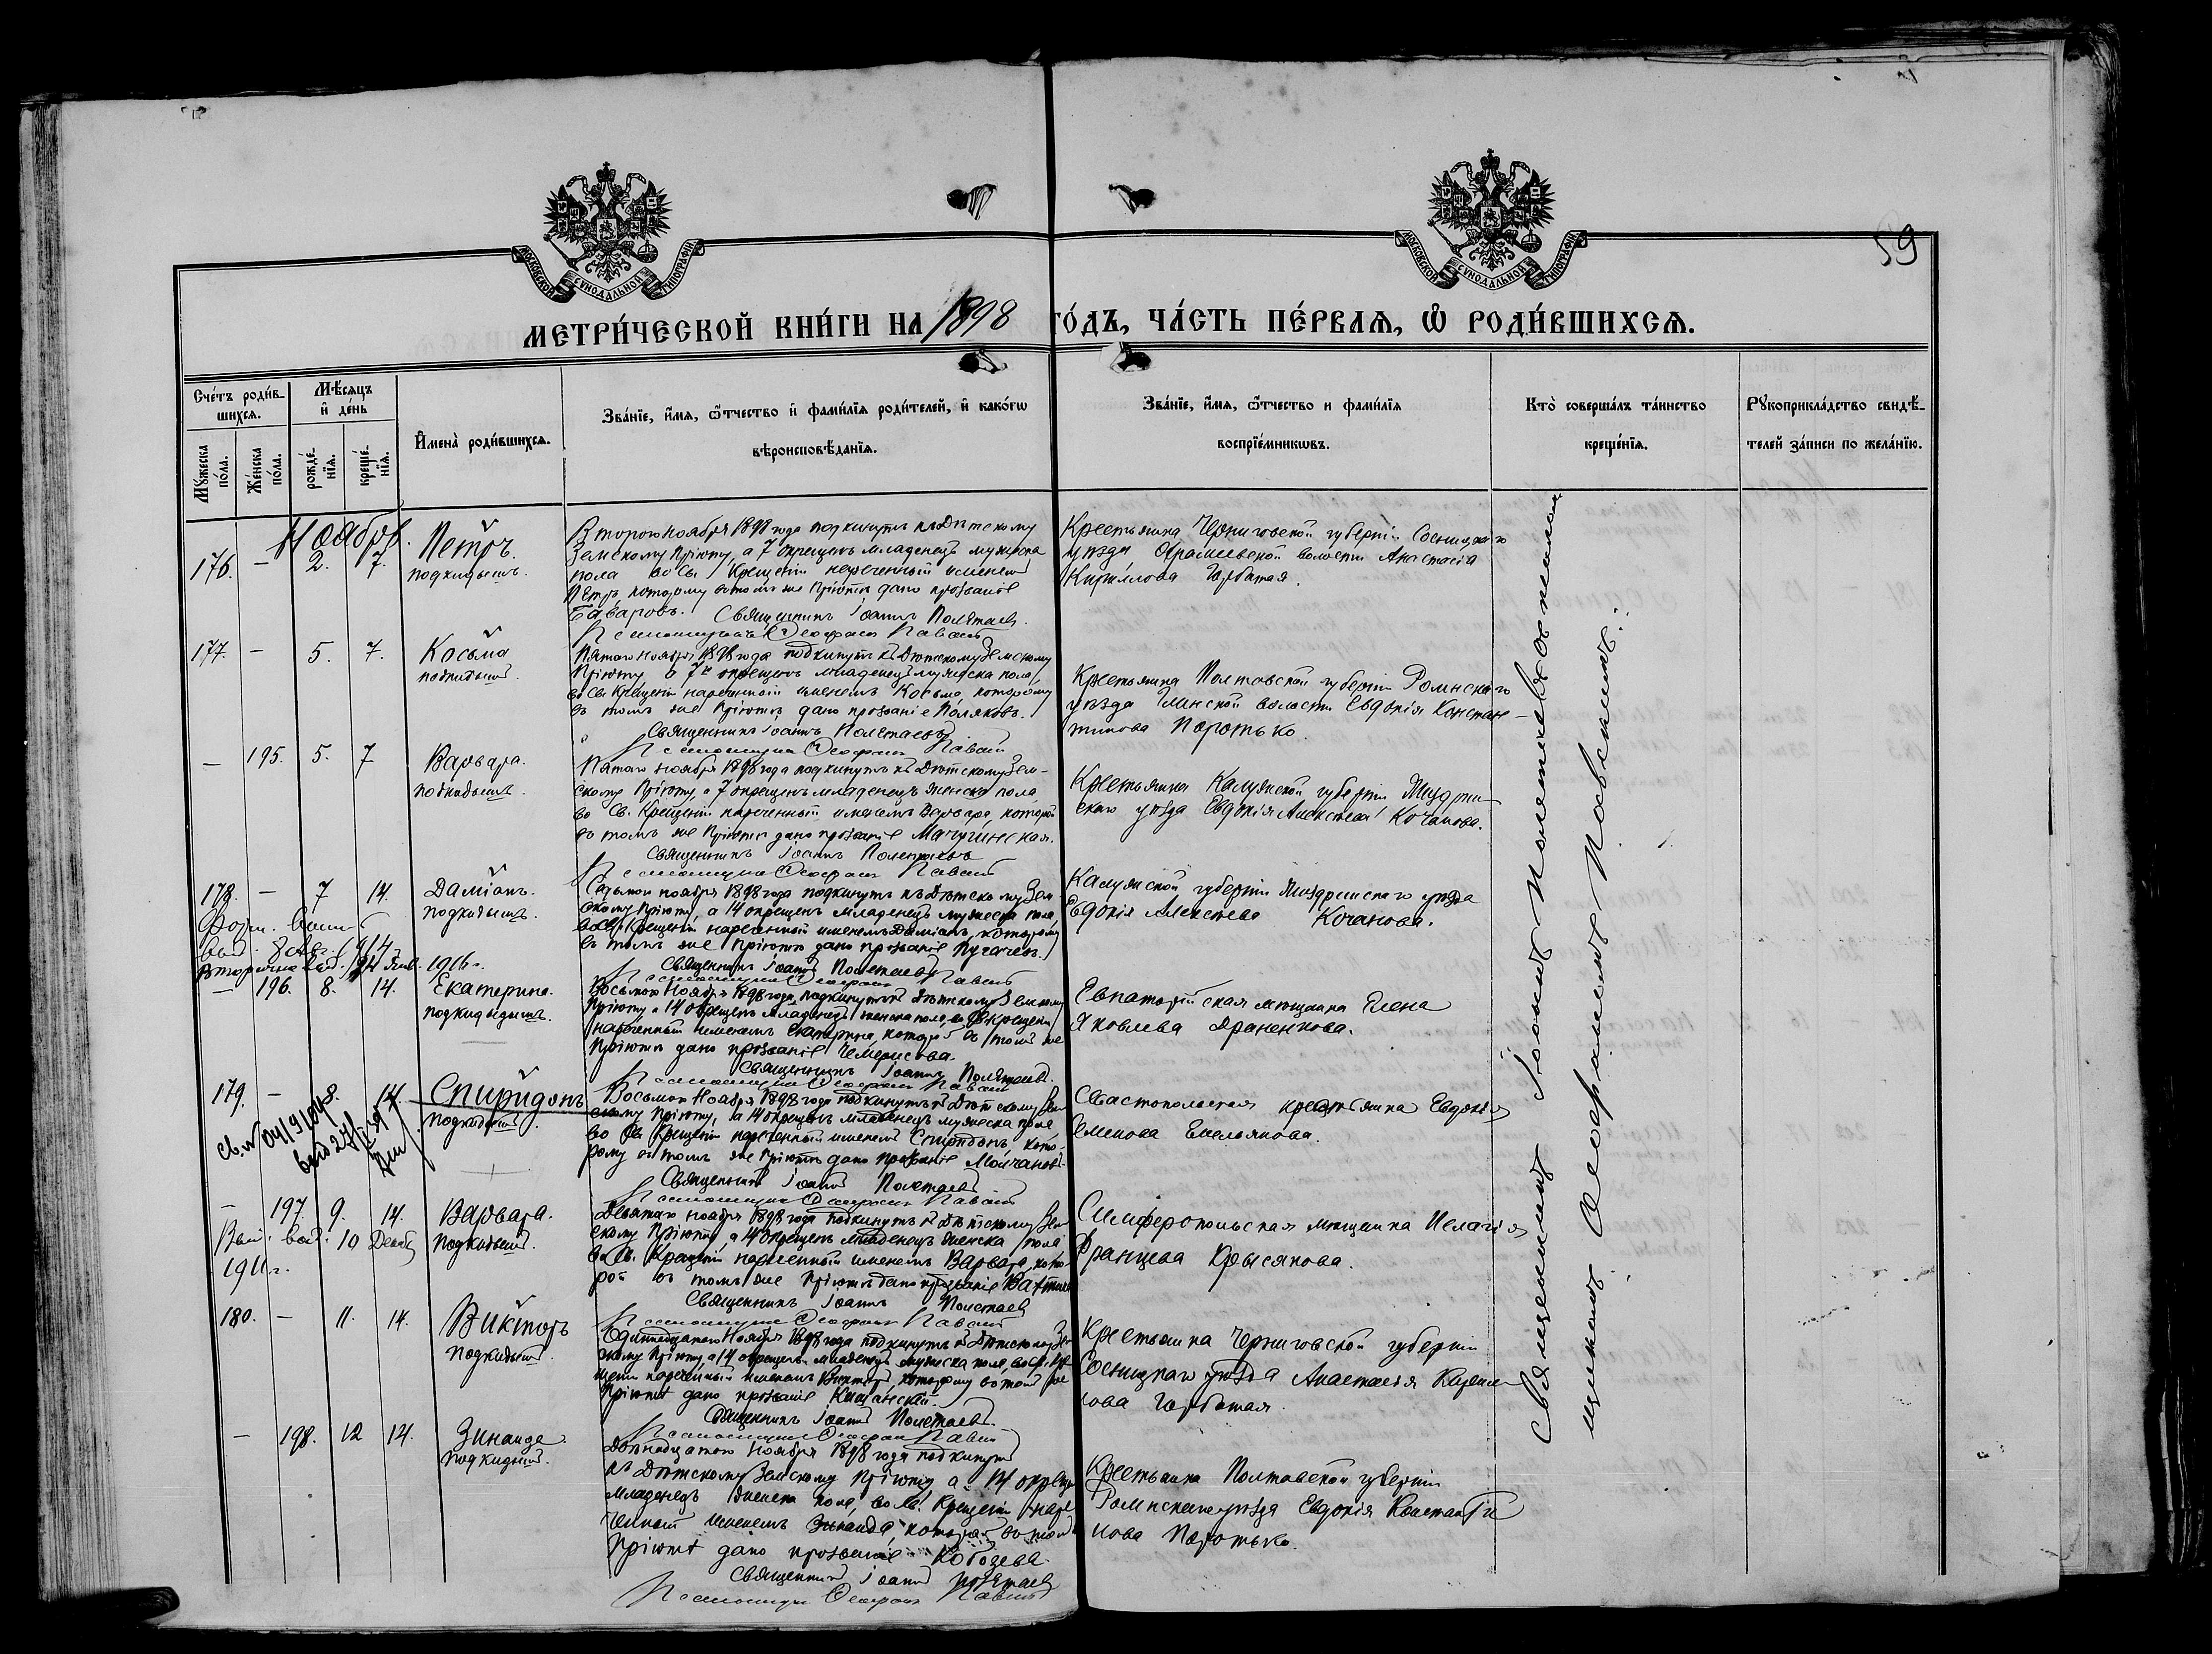 59
МОСКОВСКОЙ СУНОДАЛЬНОЙ ТИПОГРАФІИ
МОСКОВСКОЙ СУНОДАЛЬНОЙ ТИПОГРАФІИ
МЕТРИ́ЧЕСКОЙ КНИ́ГИ НА 1898 ГО́ДЪ, ЧА́СТЬ ПЕ́РВАѦ, Ѽ РОДИ́ВШИХСѦ.
Сче́тъ роди́в-
шихся.
Мѣ́сяцъ
и҆ де́нь
Мꙋ́жеска
по́ла.
Же́нска
по́ла.
рожде́-
нїя.
креще́-
нїя.
И҆мена̀ роди́вшихся.
Зва́нїе, и҆́мя, ѻ҆́тчество и҆ фами́лїя роди́телей, и҆ како́гѡ
вѣроисповѣ́данїя.
Зва́нїе, и҆́мя, ѻ҆́тчество и фами́лїя
воспрїе́мникѡвъ.
Кто̀ соверша́лъ та́инство
креще́нїя.
Рꙋкоприкла́дство свидѣ́-
телей за́писи по жела́нїю.
Ноябрь.
176. - 2. 7. Петръ.
подкидышъ.
Второго ноября 1898 года подкинутъ къ Дѣтскому
Земскому Пріюту, а 7 окрещенъ младенецъ мужеска
пола во Св. Крещеніи нареченный именемъ
Петръ, которому въ томъ же Пріютѣ дано прозваніе
Базаровъ. Священникъ Іоаннъ Полетаевъ.
Крестьянка Черниговской губерніи Сосницкаго
уѣзда волости Анастасія
Кириллова Горбатая.
177. - 5. 7. Косьма
подкидышъ.
Пятаго ноября 1898 года подкинутъ къ Дѣтскому Земскому
Пріюту, а 7 окрещенъ младенецъ мужеска пола,
во Св. Крещеніи нареченный именемъ Косьма, которому
въ томъ же Пріютѣ дано прозваніе Поляковъ.
Священникъ Іоаннъ Полетаевъ
Крестьянка Полтавской губерніи Роменскаго
уѣзда Глинской волости Евдокія Констан-
тинова Поротько.
- 195. 5. 7 Варвара.
подкидышъ.
Пятаго ноября 1898 года подкинутъ къ Дѣтскому Зем-
скому Пріюту, а 7 окрещенъ младенецъ женска пола
во Св. Крещеніи нареченный именемъ Варвара, которой
въ томъ же Пріютѣ дано прозваніе Мачугинская.
Священникъ Іоаннъ Полетаевъ
Крестьянка Калужской губерніи Миздрин
скаго уѣзда Евдокія Алексѣева Кочанова.
178. - 7 14. Даміанъ.
подкидышъ.
Седьмого ноября 1898 года подкинутъ къ Дѣтскому Зем
скому Пріюту, а 14 окрещенъ младенецъ мужеска пола,
во Св. Крещеніи нареченный именемъ Даміанъ, которому
въ томъ же Пріютѣ дано прозваніе Пугачевъ.
Священникъ Іоаннъ Полетаевъ
Калужской губерніи Миздринскаго уѣзда
Евдокія Алексѣева Кочанова.
1914
Вторично выд. Янв. 1916 г.
- 196. 8. 14. Екатерина.
подкидышъ.
Восьмого Ноября 1898 года подкинутъ къ Дѣтскому Земскому
Пріюту, а 14 окрещенъ младенецъ женска пола, во Св. Крещеніи
нареченный именемъ Екатерина, которой въ томъ же
Пріютѣ дано прозваніе Чемерисова.
Священникъ Іоаннъ Полетаевъ.
Евпаторійская мѣщанка Елена
Яковлева Драненкова.
179. - 8. 14. Спиридонъ
подкидышъ.
Восьмого Ноября 1898 года подкинутъ къ Дѣтскому Зем
скому Пріюту, а 14 окрещенъ младенецъ мужеска пола,
во Св. Крещеніи нареченный именемъ Спиридонъ, кото-
рому въ томъ же Пріютѣ дано прозваніе Молчановъ.
Священникъ Іоаннъ Полетаевъ
Севастопольская крестьянка Евдокія
Емельянова.
- 197. 9. 14. Варвара.
подкидышъ.
Девятаго ноября 1898 года подкинутъ къ Дѣтскому Зем
скому Пріюту, а 14 окрещенъ младенецъ женска пола
во Св. Крещеніи нареченный именемъ Варвара, кото-
рой въ томъ же Пріютѣ дано прозваніе
Священникъ Іоаннъ Полетаевъ
Симферопольская мѣщанка Пелагія
Францева Крысанова.
выд. 10 Декаб
1911 г.
180. - 11. 14. Викторъ
подкидышъ.
Одиннадцатаго Ноября 1898 года подкинутъ къ Дѣтскому Зем
скому Пріюту, а 14 окрещенъ младенецъ мужеска пола, во Св. Кре
щеніи нареченный именемъ Викторъ, которому въ томъ же
Пріютѣ дано прозваніе
Священникъ Іоаннъ Полетаевъ.
Крестьянка Черниговской губерніи
Сосницкаго уѣзда Анастасія Кирил
лова Горбатая.
- 198. 12 14. Зинаида.
подкидышъ.
Двѣнадцатаго Ноября 1898 года подкинутъ
къ Дѣтскому Земскому Пріюту, а 14 окрещенъ
младенецъ женска пола, во Св. Крещеніи наре
ченный именемъ Зинаида, которой въ томъ
Пріютѣ дано прозваніе Кобозева.
Священникъ Іоаннъ Полетаевъ
Крестьянка Полтавской губерніи
Роменскаго уѣзда Евдокія Константи
нова Поротько.
Священникъ Іоаннъ Полетаевъ